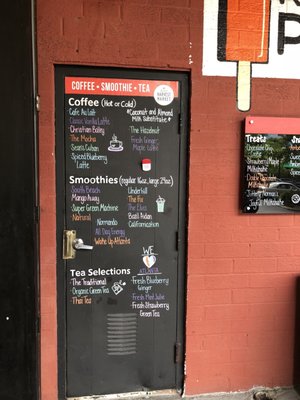 COFFEE • SMOOTHIE • TEA
Coffee (Hot or Cold)
Cafe Au Lait
Classic Vanilla Latte
Christian Bailey
The Mocha
Sears Cuban
Spiced Blueberry
Latte
*Coconut and Almond
Milk Substitute*
The Hazelnut
Fresh Ginger
Maple Latte
Smoothies (regular 16oz, large 24oz)
South Beach
Mango Away
Super Green Machine
Natural
Normando
All Day Energy
Wake Up Atlanta
Underhill
The Fix
The Elvis
Basil Aidan
Californication
WE
ATLANTA
Tea Selections
• The Traditional
• Organic Green Tea
• Thai Tea
• Fresh Blueberry
Ginger
• Fresh Mint Julie
• Fresh Strawberry
Green Tea
P
Treats
Chocolate
Latte
Strawberry Maple
Milkshake
Chocolate
Milkshake
Milkshake